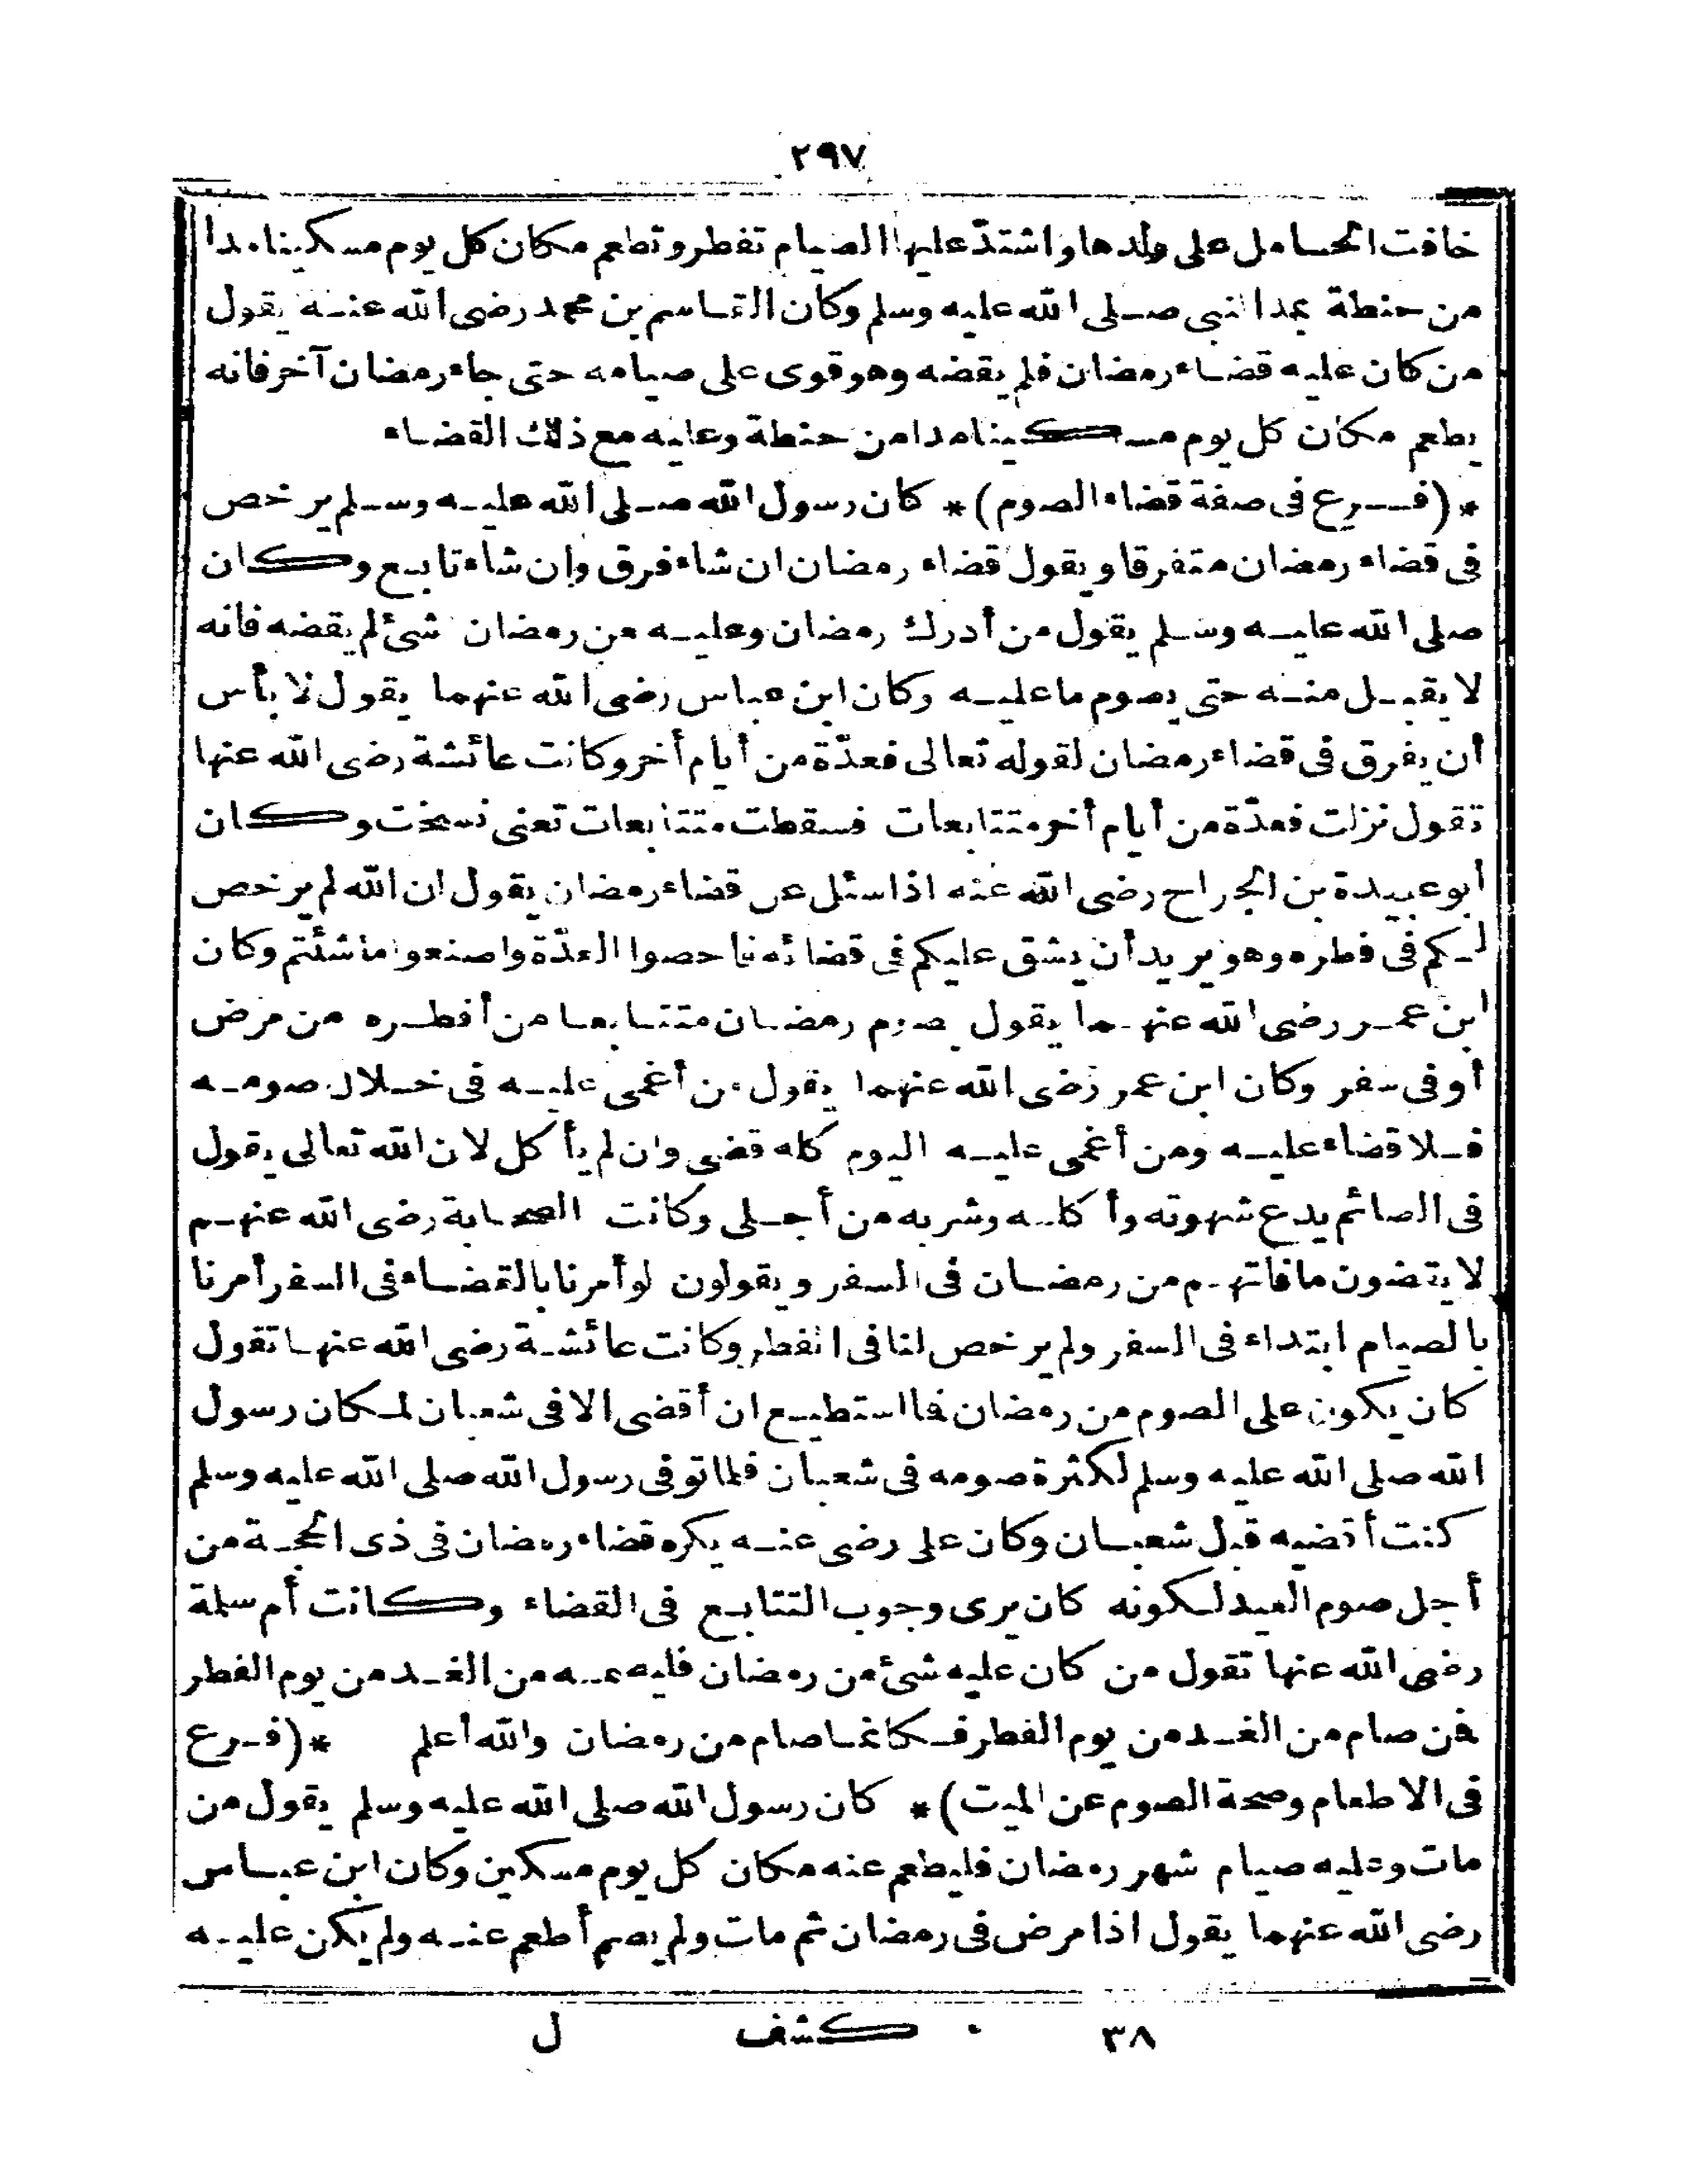 ٢٩٧
خافت الحامل على ولدها واشتدّ عليها الصيام تفطر وتطعم مكان كل يوم مسكينا مدا
من حنطة بمد النبي صلى الله عليه وسلم وكان القاسم بن محمد رضى الله عنه يقول
من كان عليه قضاء رمضان فلم يقضه وهو قوى على صيامه حتى جاء رمضان آخر فانه
يطعم مكان كل يوم مسكينا مدا من حنطة وعليه مع ذلك القضاء
* (فرع فى صفة قضاء الصوم) * كان رسول الله صلى الله عليه وسلم يرخص
فى قضاء رمضان متفرقا ويقول قضاء رمضان ان شاء فرق وإن شاء تابع وكان
صلى الله عليه وسلم يقول من أدرك رمضان وعليه من رمضان شئ لم يقضه فانه
لا يقبل منه حتى يصوم ما عليه وكان ابن عباس رضى الله عنهما يقول لا بأس
أن يفرق فى قضاء رمضان لقوله تعالى فعدّة من أيام أخر وكانت عائشة رضى الله عنها
تقول نزلت فعدّة من أيام أخر متتابعات فسقطت متتابعات تعنى نسخت وكان
أبو عبيدة بن الجراح رضى الله عنه اذا سئل عن قضاء رمضان يقول ان الله لم يرخص
لكم فى فطره وهو يريد أن يشق عليكم فى قضائه فاحصوا العدّة واصنعوا ما شئتم وكان
ابن عمر رضى الله عنهما يقول يصوم رمضان متتابعا من أفطره من مرض
أو فى سفر وكان ابن عمر رضى الله عنهما يقول من أغمى عليه فى خلال صومه
فلا قضاء عليه ومن أغمى عليه اليوم كله قضى وان لم يأكل لان الله تعالى يقول
فى الصائم يدع شهوته وأكله وشربه من أجلى وكانت الصحابة رضى الله عنهم
لا يقضون ما فاتهم من رمضان فى السفر ويقولون لو أمرنا بالقضاء فى السفر أمرنا
بالصيام ابتداء فى السفر ولم يرخص لنا فى الفطر وكانت عائشة رضى الله عنها تقول
كان يكون على الصوم من رمضان فما استطيع ان أقضى الا فى شعبان لمكان رسول
الله صلى الله عليه وسلم لكثرة صومه فى شعبان فلما توفى رسول الله صلى الله عليه وسلم
كنت أقضيه قبل شعبان وكان على رضى عنه يكره قضاء رمضان فى ذى الحجة من
أجل صوم العيد لكونه كان يرى وجوب التتابع فى القضاء وكانت أم سلمة
رضى الله عنها تقول من كان عليه شئ من رمضان فليصمه من الغد من يوم الفطر
فمن صام من الغد من يوم الفطر فكانما صام من رمضان والله أعلم * (فرع
فى الاطعام وصحة الصوم عن الميت) * كان رسول الله صلى الله عليه وسلم يقول من
مات وعليه صيام شهر رمضان فليطعم عنه مكان كل يوم مسكين وكان ابن عباس
رضى الله عنهما يقول اذا مرض فى رمضان ثم مات ولم يصم أطعم عنه ولم يكن عليه
٣٨ كشف ل